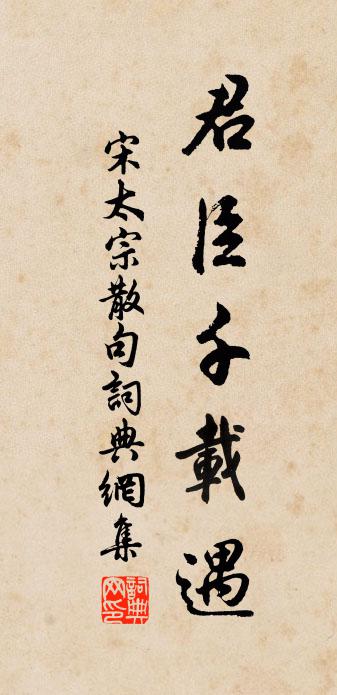 君臣千載遇
宋太宗散句詞典網集
詞典網印